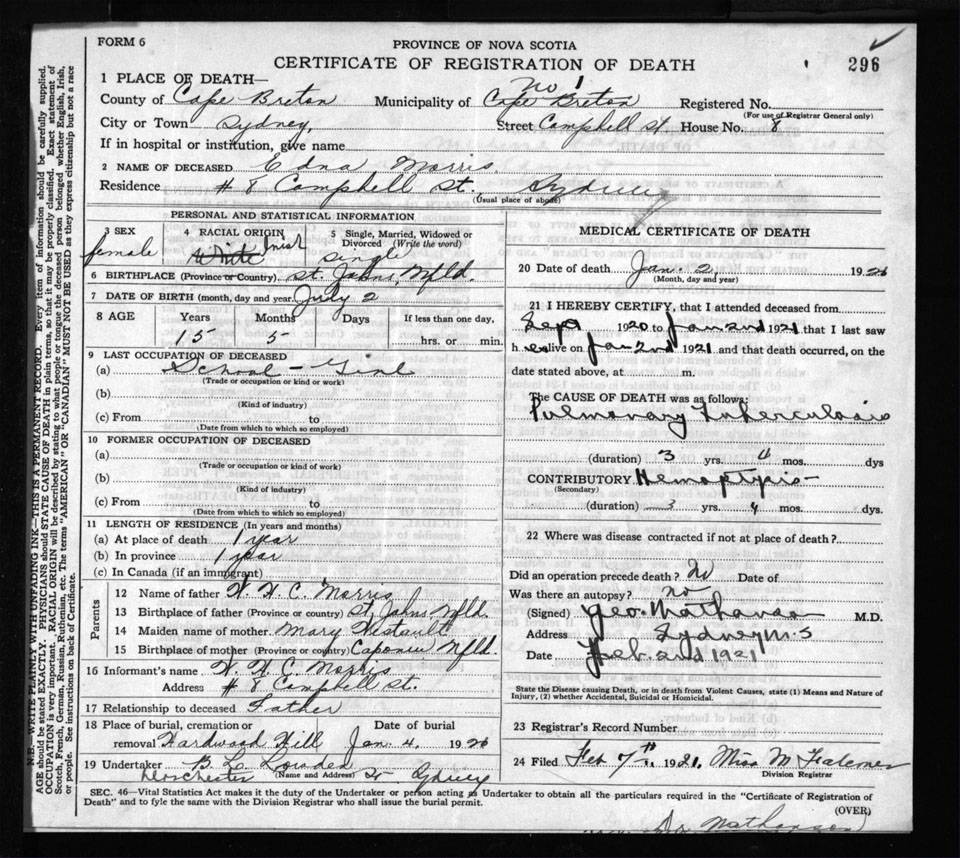 FORM 6
PROVINCE OF NOVA SCOTIA
CERTIFICATE OF REGISTRATION OF DEATH
296
1 PLACE OF DEATH—
No 1
County of Cape Breton Municipality of Cape Breton Registered No.
(For use of Registrar General only)
City or Town Sydney, Street Campbell St. House No. 8
If in hospital or institution, give name
2 NAME OF DECEASED Edna Morris.
Residence # 8 Campbell St., Sydney
(Usual place of abode)
PERSONAL AND STATISTICAL INFORMATION
3 SEX
female
4 RACIAL ORIGIN
White Irish
5 Single, Married, Widowed or Divorced (Write the word)
single
6 BIRTHPLACE (Province or Country) St. Johns, Nfld.
7 DATE OF BIRTH (month, day and year) July 2
8 AGE Years Months Days If less than one day,
15 5 hrs. or min.
9 LAST OCCUPATION OF DECEASED
(a) School – Girl
(Trade or occupation or kind or work)
(b)
(Kind of industry)
(c) From to
(Date from which to which so employed)
10 FORMER OCCUPATION OF DECEASED
(a)
(Trade or occupation or kind of work)
(b)
(Kind of industry)
(c) From to
(Date from which to which so employed)
11 LENGTH OF RESIDENCE (In years and months)
(a) At place of death 1 year
(b) In province 1 year
(c) In Canada (if an immigrant)
Parents
12 Name of father W. H. C. Morris
13 Birthplace of father (Province or country) St. Johns, Nfld.
14 Maiden name of mother Mary
15 Birthplace of mother (Province or country) Nfld.
16 Informant's name W. H. C. Morris
Address # 8 Campbell St.
17 Relationship to deceased Father
18 Place of burial, cremation or removal Hardwood Hill
Date of burial Jan. 4, 1920
19 Undertaker B. L. Lowden
Dorchester St Sydney
(Name and Address)
MEDICAL CERTIFICATE OF DEATH
20 Date of death Jan. 2, 1920
(Month, day and year)
21 I HEREBY CERTIFY, that I attended deceased from
Sept 1920 to Jan 2nd 1921 that I last saw
h er alive on Jan 2nd 1921 and that death occurred, on the
date stated above, at m.
The CAUSE OF DEATH was as follows:
Pulmonary Tuberculosis
(duration) 3 yrs. 4 mos. dys
CONTRIBUTORY Hemoptysis
(Secondary)
(duration) 3 yrs. 4 mos. dys.
22 Where was disease contracted if not at place of death?
Did an operation precede death? No Date of
Was there an autopsy? no
(Signed) Geo. Matheson M.D.
Address Sydney N.S
Date Feb. 2nd 1921
State the Disease causing Death, or in death from Violent Causes, state (1) Means and Nature of
Injury, (2) whether Accidental, Suicidal or Homicidal.
23 Registrar's Record Number
24 Filed Feb 7th, 1921. Miss M
Division Registrar
SEC. 46—Vital Statistics Act makes it the duty of the Undertaker or person acting as Undertaker to obtain all the particulars required in the "Certificate of Registration of
Death" and to fyle the same with the Division Registrar who shall issue the burial permit.
(OVER)
Dr Matheson
N.B.—WRITE PLAINLY WITH UNFADING INK—THIS IS A PERMANENT RECORD. Every item of information should be carefully supplied.
AGE should be stated EXACTLY. PHYSICIANS should STATE CAUSE OF DEATH in plain terms, so that it may be properly classified. Exact statement of
OCCUPATION is very important. RACIAL ORIGIN will be described by stating to what people or tongue the deceased person belonged whether English, Irish,
Scotch, French, German, Russian, Ruthenian, etc. The terms "AMERICAN" OR "CANADIAN" MUST NOT BE USED as they express citizenship but not a race
or people. See instructions on back of Certificate.